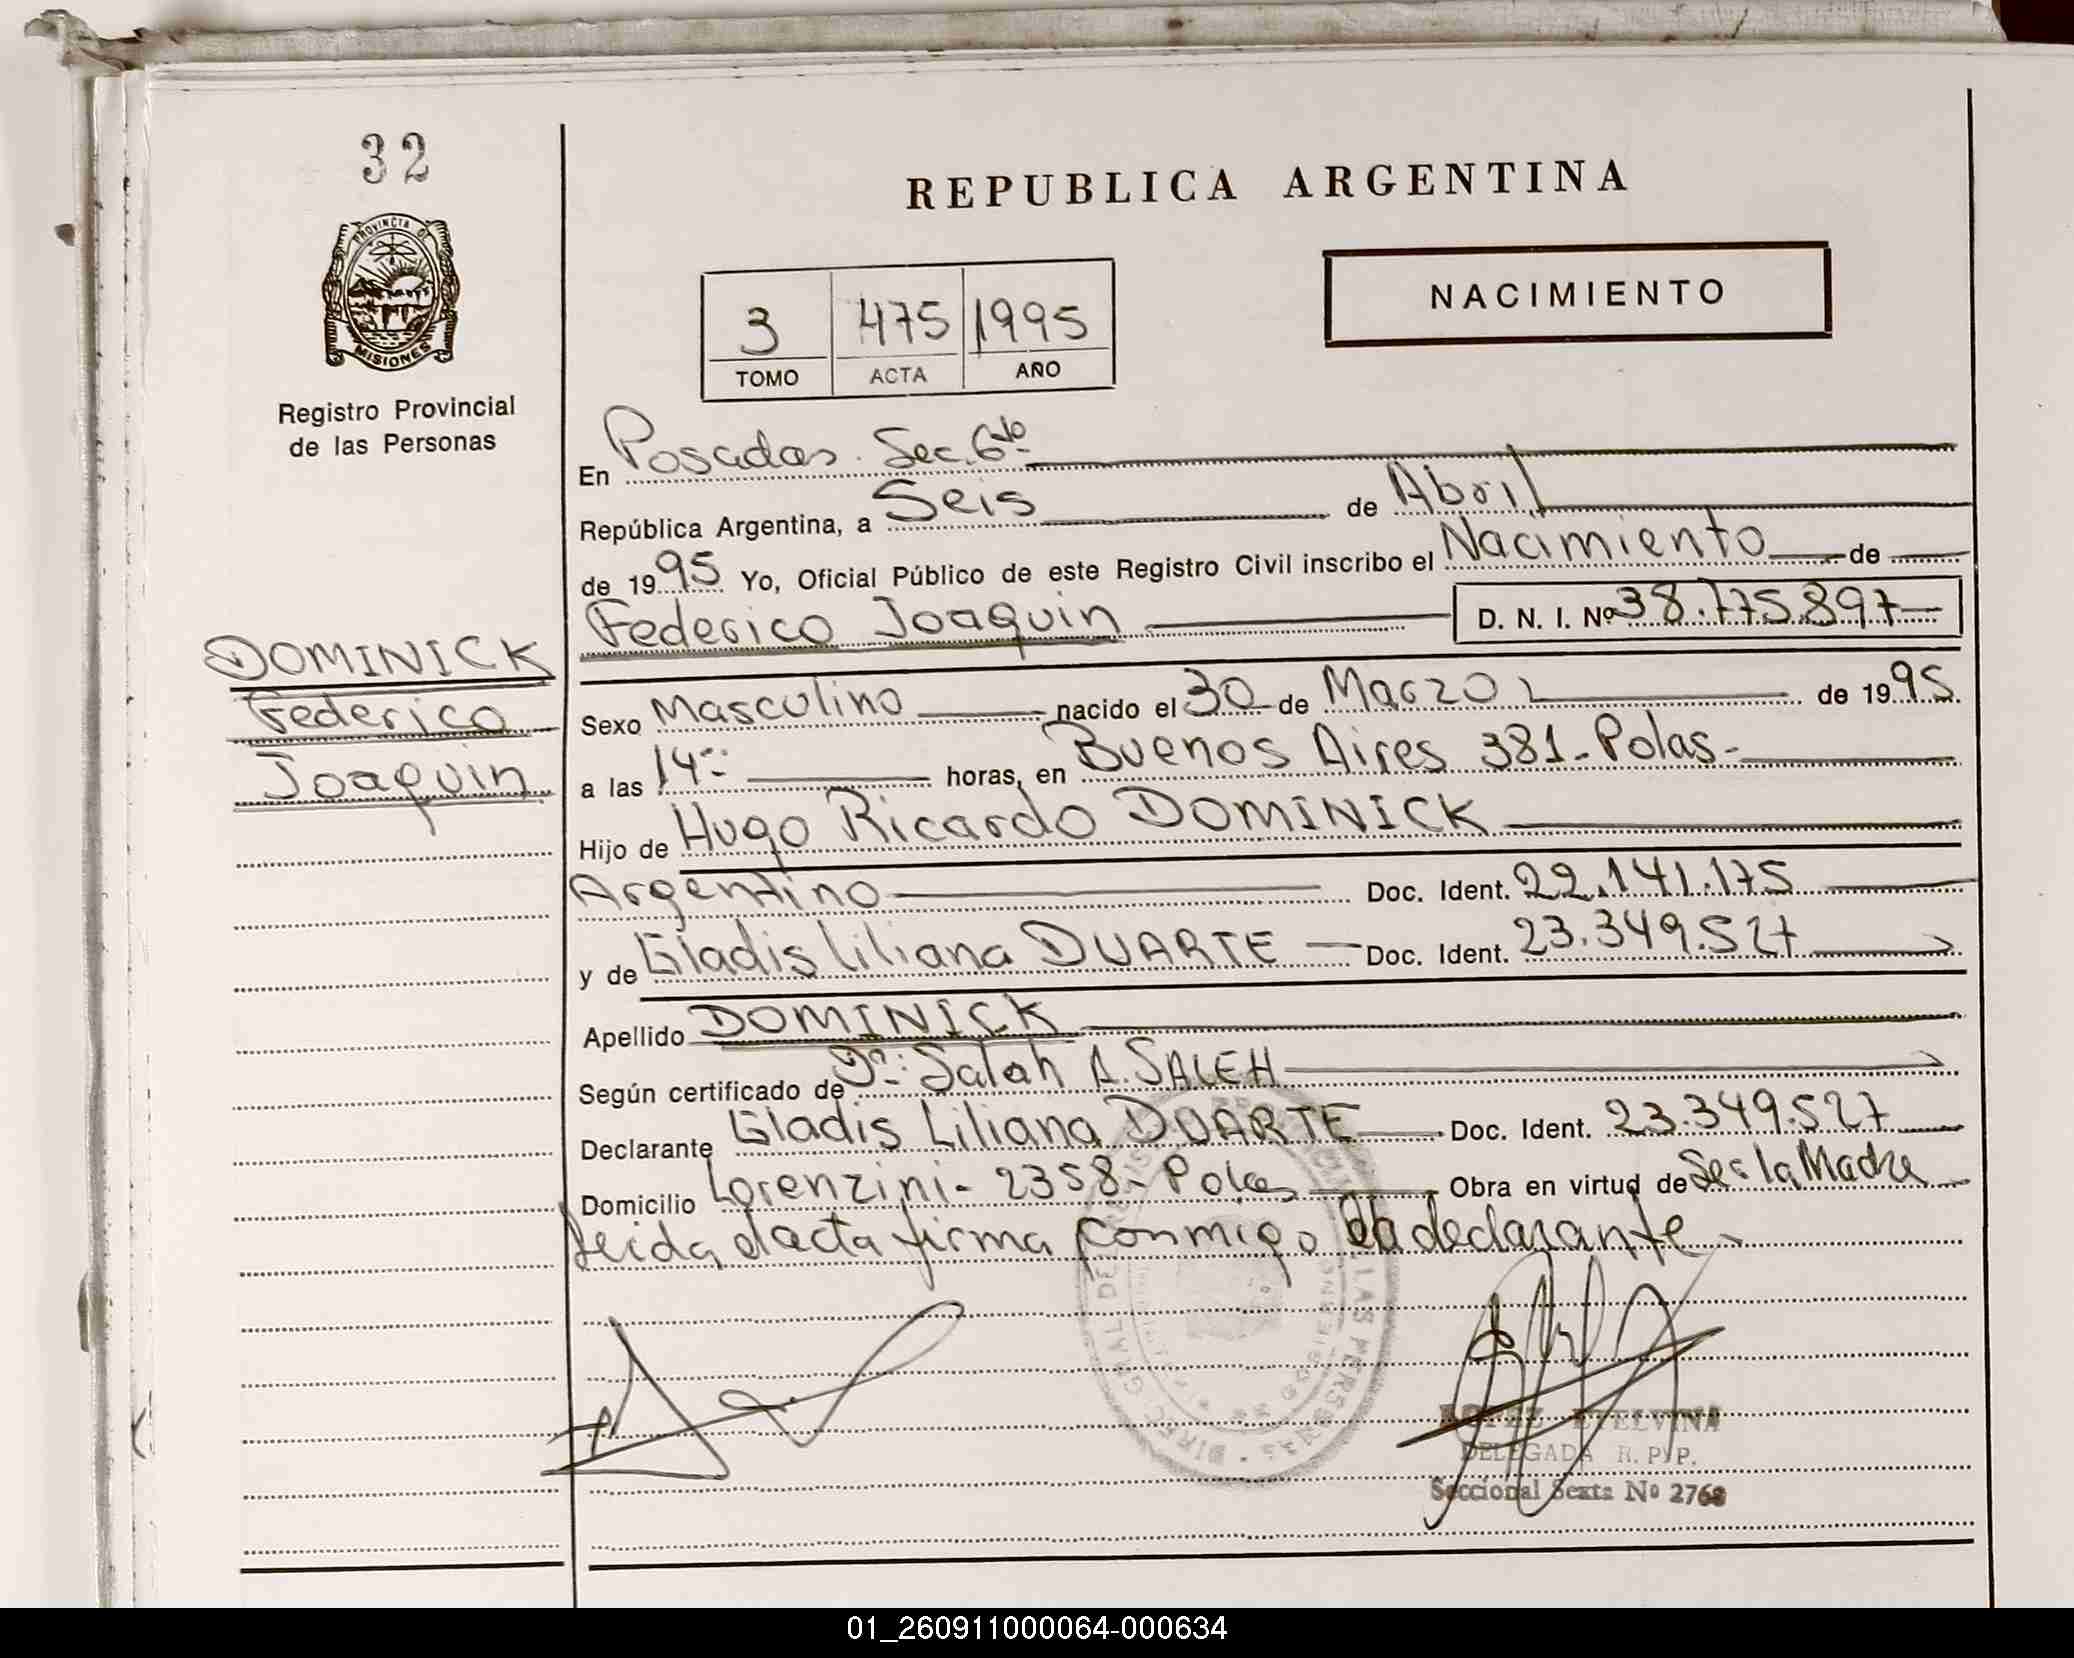 32
PROVINCIA DE
MISIONES
Registro Provincial
de las Personas
REPUBLICA ARGENTINA
NACIMIENTO
3 475 1995
TOMO ACTA AÑO
En Posadas. Sec. 6ta
República Argentina, a Seis de Abril
de 1995 Yo, Oficial Público de este Registro Civil inscribo el Nacimiento de
Federico Joaquin D. N. I. Nº 38.775.897
DOMINICK
Federico
Joaquin
Sexo Masculino nacido el 30 de Marzo de 1995.
a las 14 horas, en Buenos Aires 381-Pdas-
Hijo de Hugo Ricardo DOMINICK
Argentino Doc. Ident. 22.141.175
y de Gladis Liliana DUARTE Doc. Ident. 23.349.527
Apellido DOMINICK
Según certificado de Dr: Salah A. SALEH
Declarante Gladis Liliana DUARTE Doc. Ident. 23.349.527
Domicilio Lorenzini- 2358- Pdas Obra en virtud de Ser la Madre
Leida el acta firma conmigo la declarante
LOPEZ ETELVINA
DELEGADA R. P. P.
Seccional Sexta Nº 2768
01_260911000064-000634